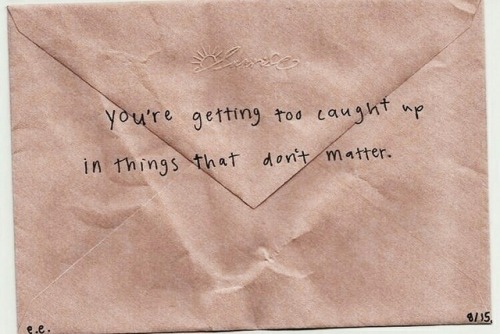 you're getting too caught up
in things that don't matter.
e.e.
8/15.